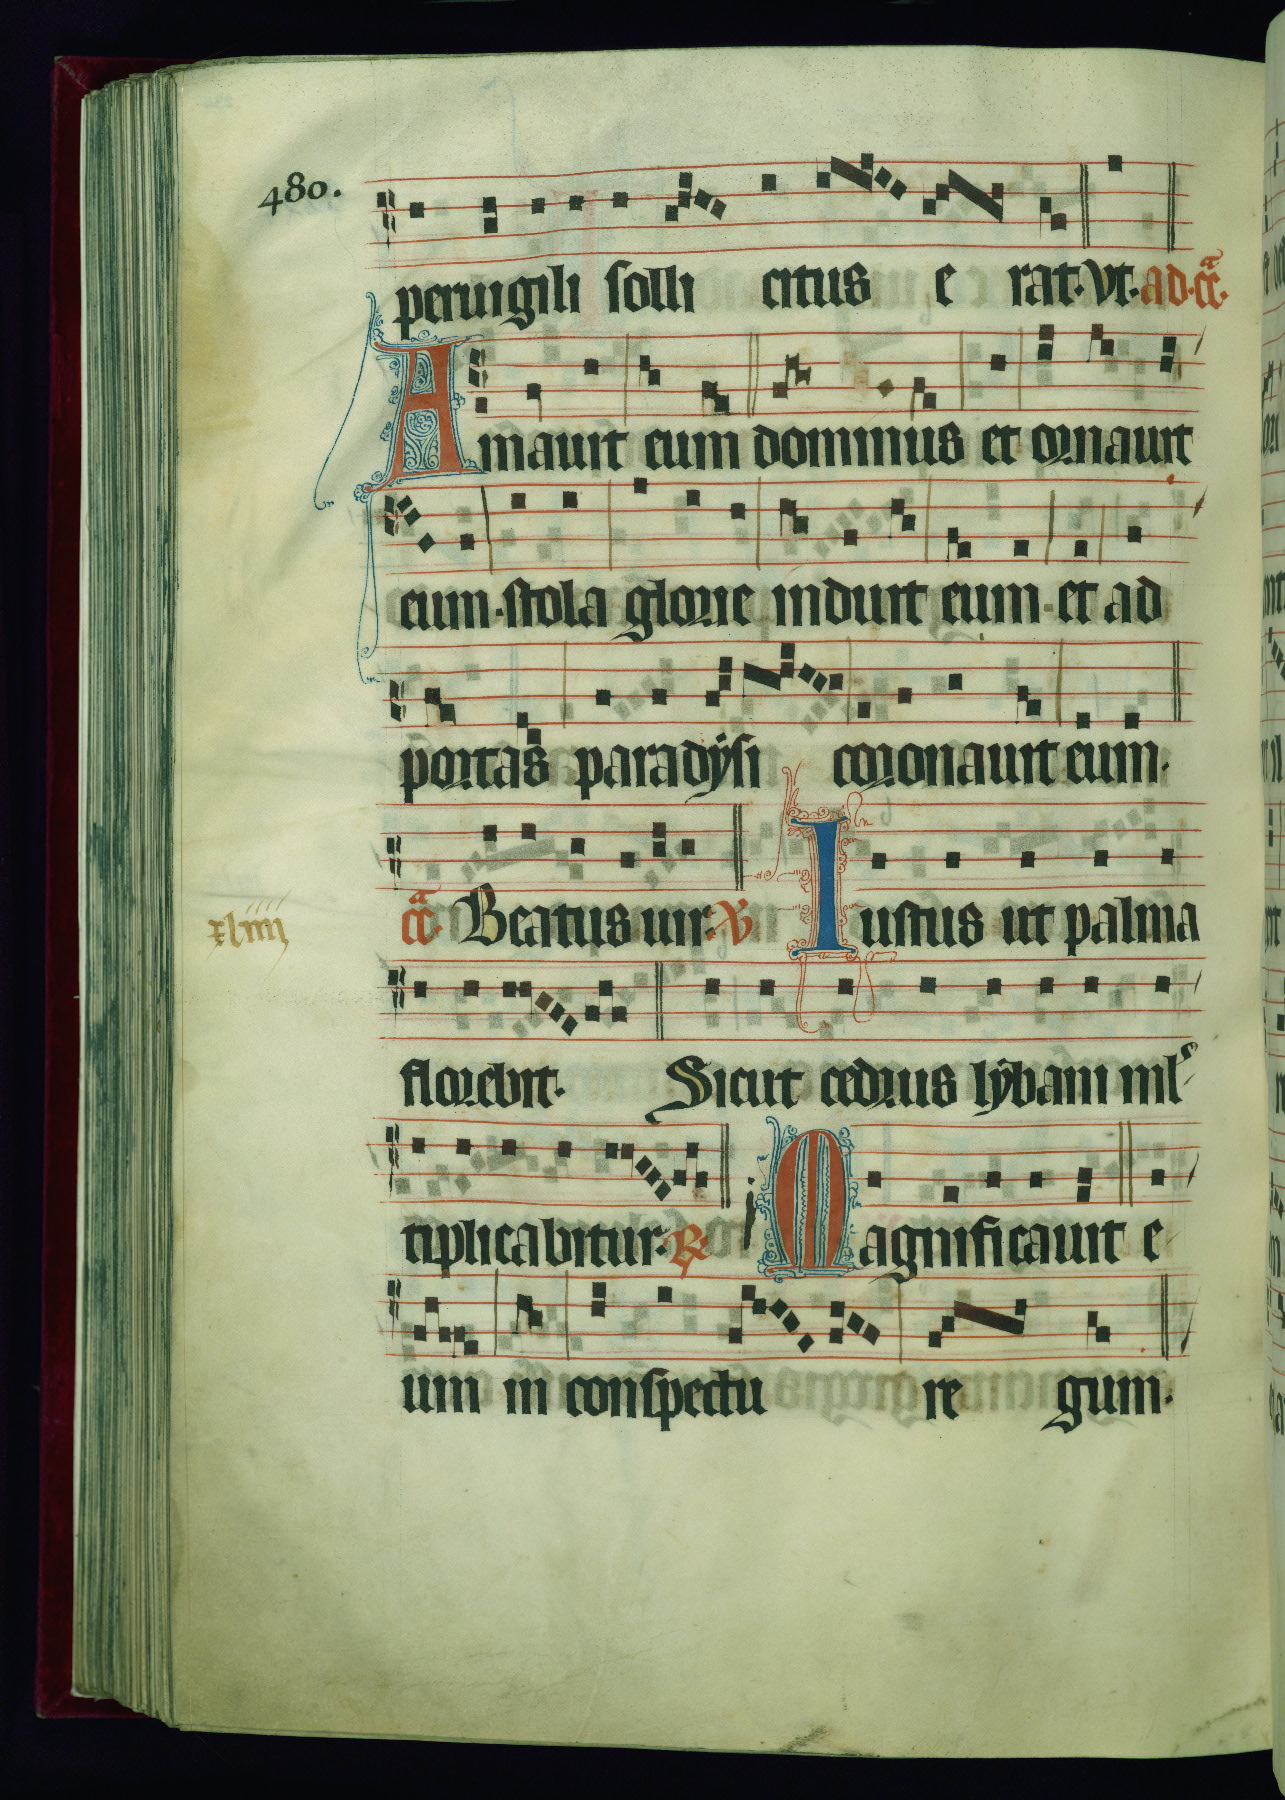 480.
peruigili solli citus e rat. Vt. ad. cã.
Amauit eum dominus et ornauit
eum. stola glorie induit eum. et ad
portas paradÿsi coronauit eum.
cã. Beatus uir. v Iustus ut palma
xliiii
florebit. Sicut cedrus lÿbani ml̾
tiplicabitur. R. Magnificauit e
um in conspectu re gum.